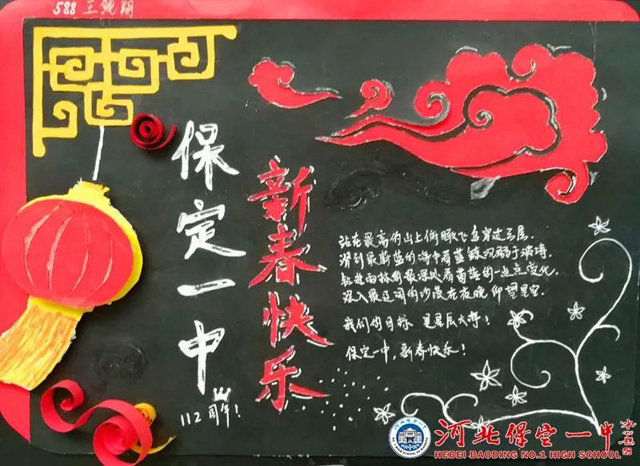 588 王
保定一中
新春快乐
112周年！
站在最高的山上俯瞰飞鸟穿过云层，
潜到最斯蓝的海中看蓝鲸沉溺于波涛，
钻进雨林的最深处看苔藓的一点点变化，
深入最辽阔的沙漠在夜晚仰望星空，
我们的目标 是星辰大海！
保定一中，新春快乐！
河北保定一中
HEBEI BAODING NO.1 HIGH SCHOOL